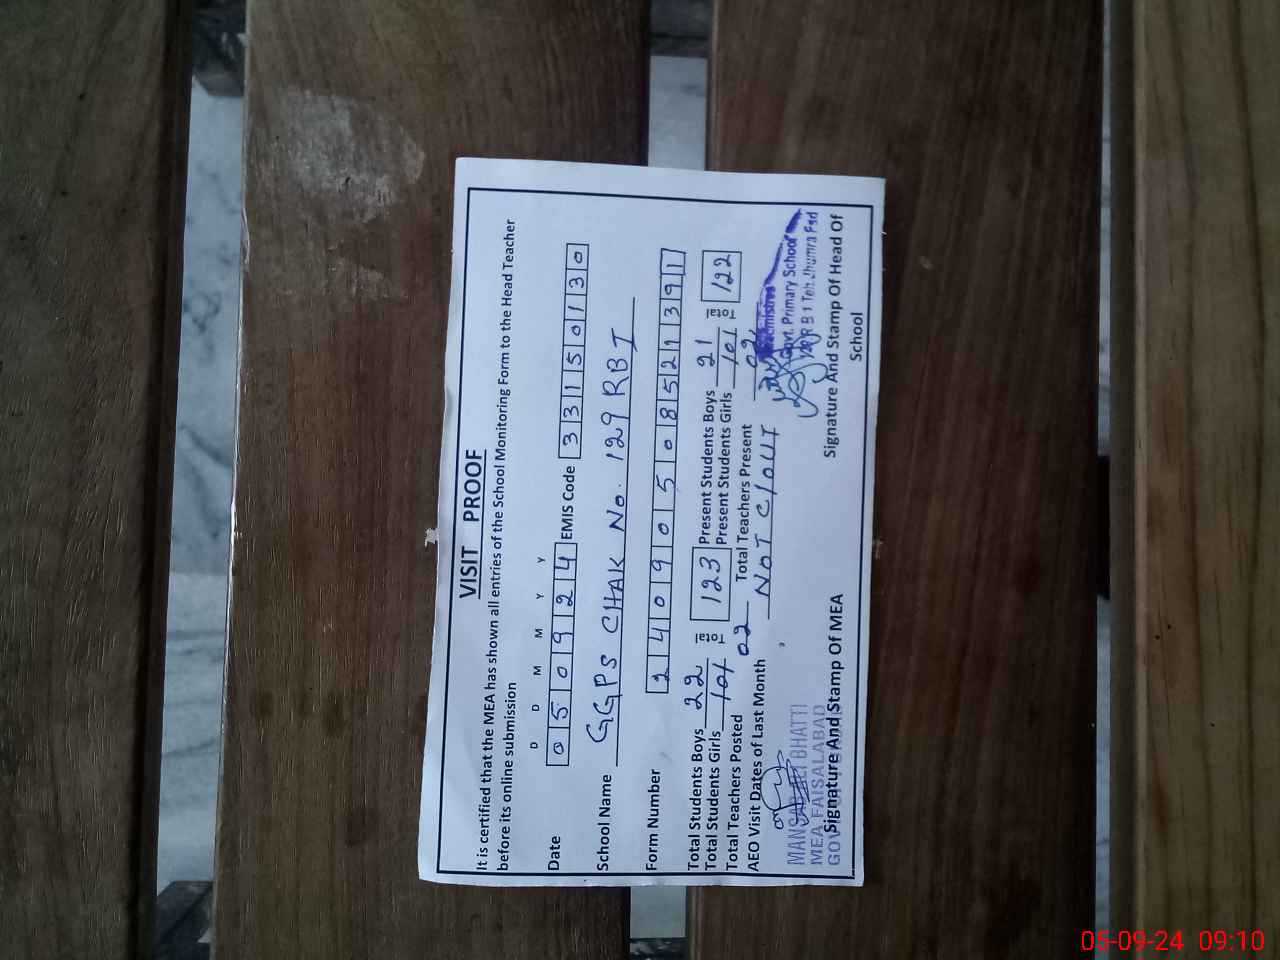 VISIT PROOF
It is certified that the MEA has shown all entries of the School Monitoring Form to the Head Teacher
before its online submission
D D M M Y Y
Date 050924 EMIS Code 33150130
School Name GGPS CHAK No. 129 RBI
Form Number 24090508521391
Total Students Boys 22 Present Students Boys 21
Total Students Girls 101 123 Present Students Girls 101 122
Total Teachers Posted 02 Total Teachers Present 02
AEO Visit Dates of Last Month NOT CLOUT
MANSAB ALI BHATTI
MEA FAISALABAD
Signature And Stamp Of MEA
Govt. Primary School
129 R B 1 Teh. Jhumra Fsd
Signature And Stamp Of Head Of
School
05-09-24 09:10